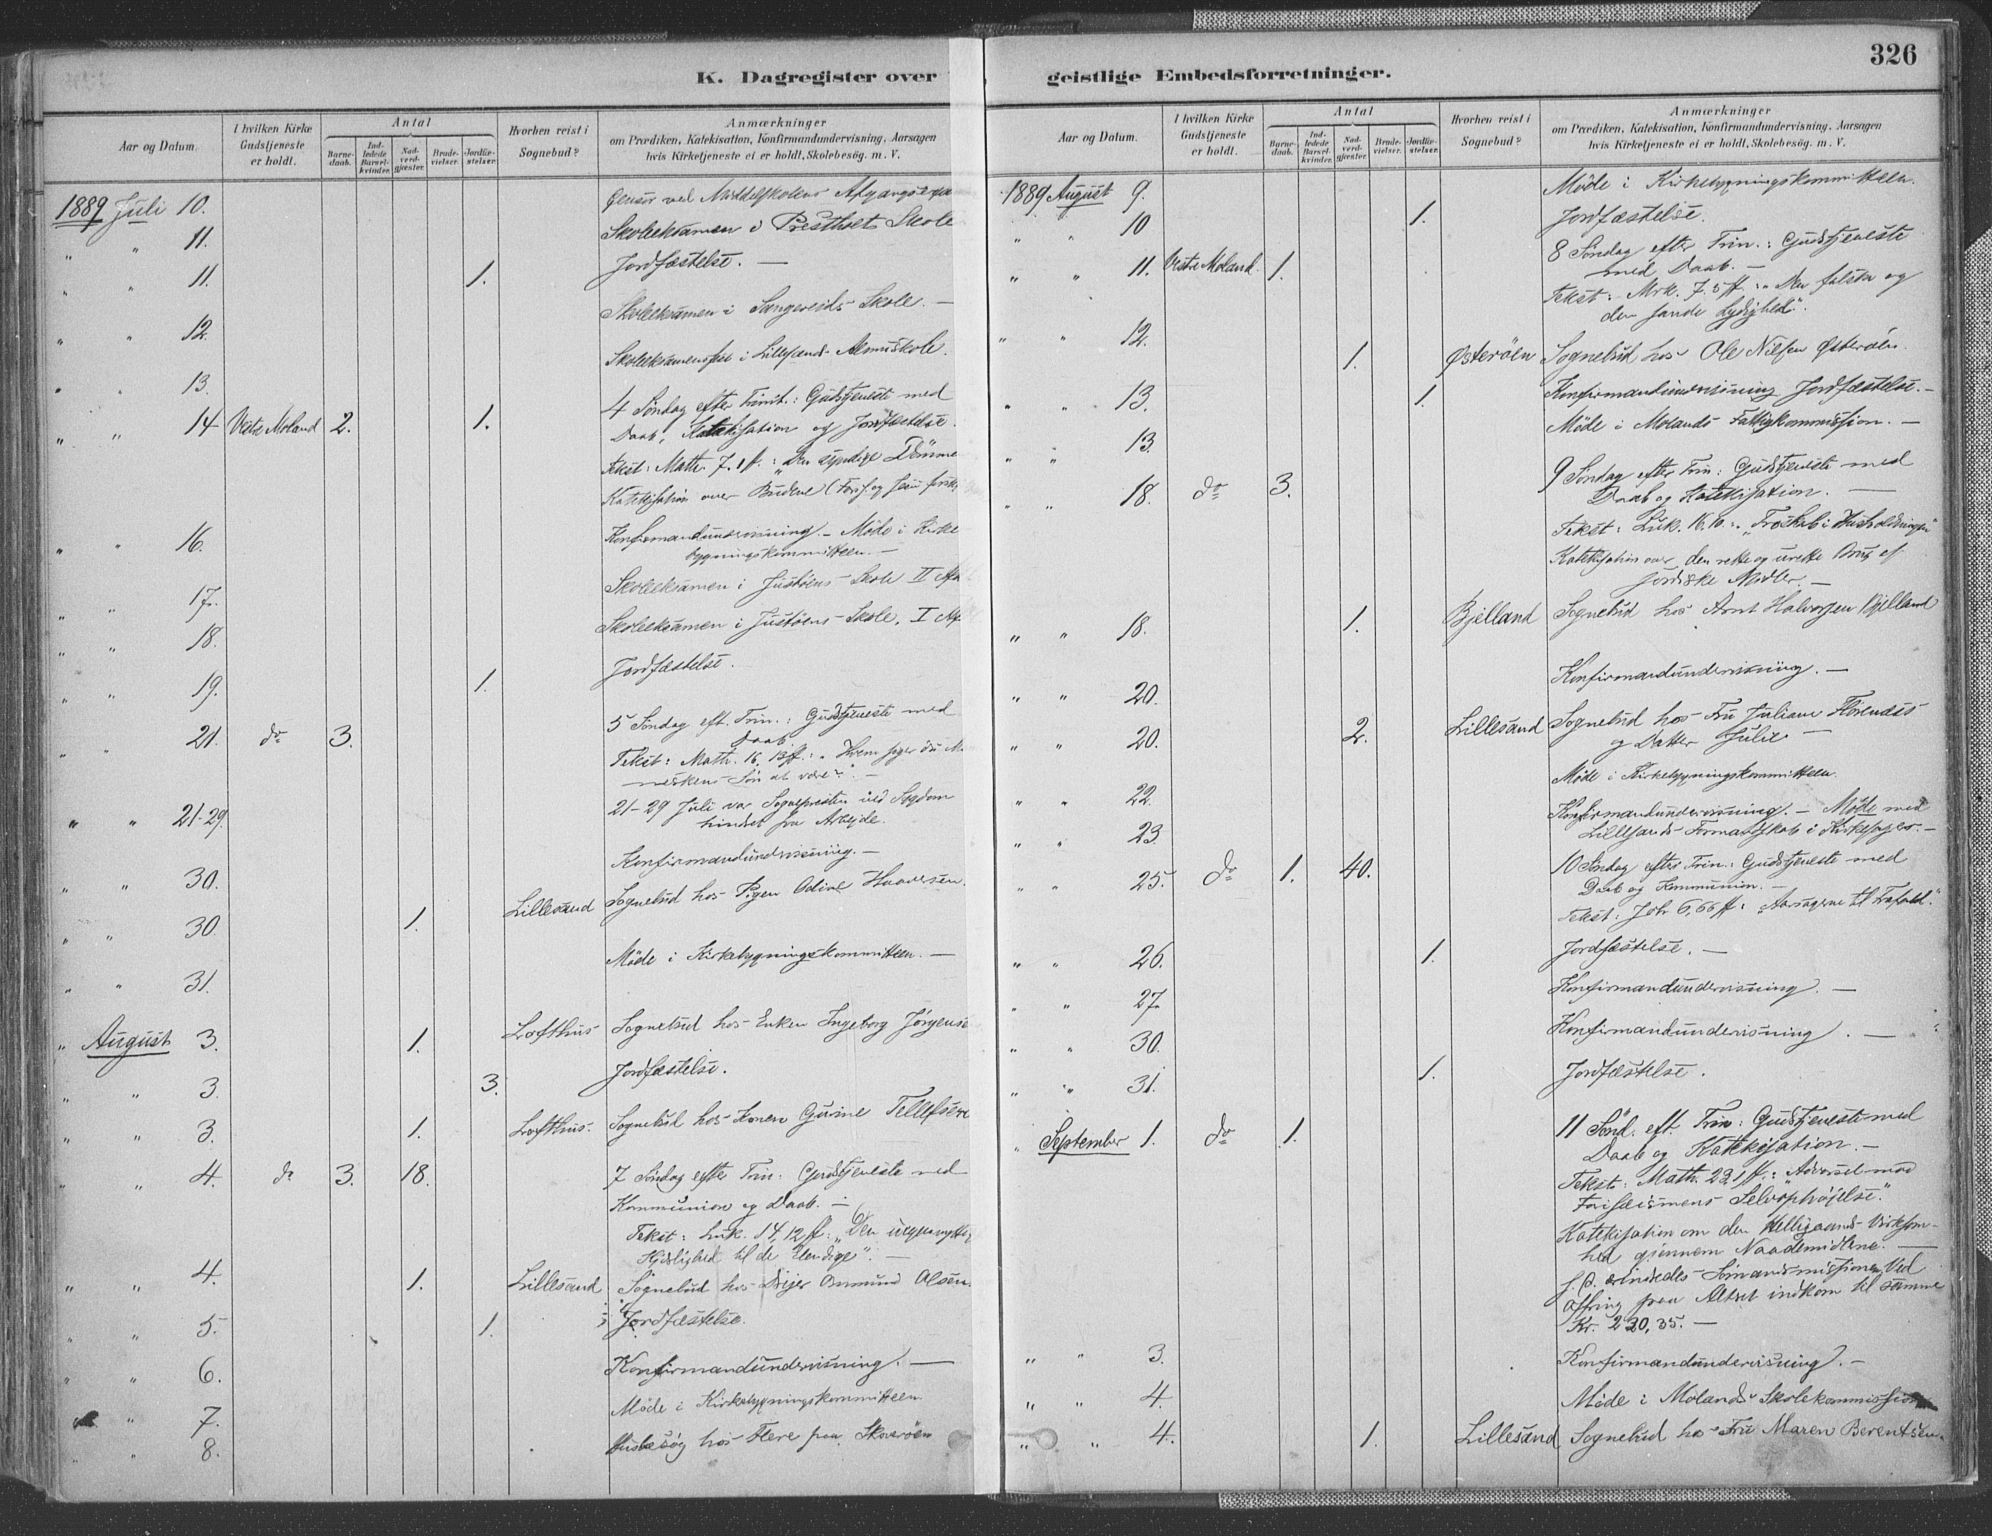 326
K. Dagregister over
Aar og Datum.
I hvilken Kirke Gudstjeneste er holdt.
Antal
Barnedaab.
Indledede Barselkvinder.
Nadverdgjester.
Brudevielser.
Jordfæstelser.
Hvorhen reist i Sognebud?
Anmærkninger
om Prædiken, Katekisation, Konfirmandundervisning, Aarsagen
hvis Kirketjeneste ei er holdt, Skolebesög. m. V.
1889 Juli 10. Censor ved Middelskolens
" " 11. Skoleeksamen i Præstholt Skole
" " 11. 1. Jordfæstelse. —
" " 12. Skoleeksamen i Sangereids Skole. —
" " 13. Skoleeksamen i Lillesands Almuskole.
" " 14 Vestre Moland 2. 1. 4 Søndag efter Trinit.: Gudstjeneste med
Daab, Katekisation og Jordfæstelse.
Tekst: Math. 7. 1 ff.: "Den syndige Dömme
Katekisation over Budene
" " 16. Konfirmandundervisning. — Møde i Kirke
bygningskommitteen. —
" " 17. Skoleeksamen i Justøens Skole II
" " 18. Skoleeksamen i Justøens Skole, I
" " 19. 1. Jordfæstelse.
" " 21. do 3. 5 Søndag eft. Trin.: Gudstjeneste med
Daab
Tekst: Math. 16, 13 ff.: "Hvem siger de Me
neskens Søn at være". —
" " 21-29. 21-29 Juli var Sognepresten ved Sygdom
hindret fra Arbejde.
" " 30. Konfirmandundervisning. —
" " 30. 1. Lillesand Sognebud hos Pigen Odine
" " 31. Møde i Kirkebygningskommitteen. —
" August 3. 1. Lofthus Sognebud hos Enken Ingeborg Jörgense
" " 3. 3. Jordfæstelse.
" " 3. 1. Lofthus. Sognebud hos Konen Gurine Tellefsen
" " 4. do 3. 18. 7 Søndag efter Trin: Gudstjeneste med
Kommunion og Daab. —
Tekst: Luk. 14, 12 ff: "Den
til de Elendige". —
" " 4. 1. Lillesand Sognebud hos Onmund Olsen.
" " 5. 1. Jordfæstelse.
" " 6. Konfirmandundervisning. —
" 7. Møde i Kirkebygningskommitteen.
" " 8. Husbesøg hos Flere paa
geistlige Embedsforretninger.
Aar og Datum.
I hvilken Kirke Gudstjeneste er holdt.
Antal
Barnedaab.
Indledede Barselkvinder.
Nadverdgjester.
Brudevielser.
Jordfæstelser.
Hvorhen reist i Sognebud?
Anmærkninger
om Prædiken, Katekisation, Konfirmandundervisning, Aarsagen
hvis Kirketjeneste ei er holdt, Skolebesög. m. V.
1889 August 9. Møde i Kirkebygningskommitteen.
" " 10 1. Jordfæstelse.
" " 11. Vestre Moland. 1. 8 Søndag efter Trin.: Gudstjeneste
med Daab. —
Tekst: Mrk. 7. 5 ff.: "Den falske og
den sande Lydighed".
" " 12. 1. Østerøen Sognebud hos Ole Nilsen Østerøen.
" " 13. 1. Konfirmandundervisning Jordfæstelse. —
" " 13. Møde i Molands Fattigkommission. —
" " 18. do 3. 9 Søndag efter Trin: Gudstjeneste med
Daab og Katekisation. —
Tekst: Luk. 16, 10: "Troskab i Husholdningen"
Katekisation over den rette og urette Brug af
Jordiske Midler. —
" " 18. 1. Bjelland Sognebud hos Arnt Halvorsen Bjelland
" " 20. Konfirmandundervisning. —
" " 20. 2. Lillesand Sognebud hos Fru Juliane
og Datter Julie —
" " 22. Møde i Kirkebygningskommitteen.
" " 23. Konfirmandundervisning. — Møde med
Lillesands Formandskab i
" " 25. do 1. 40. 10 Søndag efter Trin: Gudstjeneste med
Daab og Kommunion. —
Tekst: Joh 6, 66 ff: "Aarsagerne til Frafald".
" " 26. 1. Jordfæstelse. —
" " 27. Konfirmandundervisning. —
" " 30. Konfirmandundervisning. —
" " 31. 1. Jordfæstelse.
" September 1. do 1. 11 Sönd. eft. Trin: Gudstjeneste med
Daab og Katekisation. —
Tekst: Math. 23, 1 ff: "Advarsel mod
Farisæismens Selvophøjelse".
Katekisation om den Helligaands Virksom-
hed gjennem Naademidlene. —
Sömandsmissionen. Ved
Offring paa Altret indkom til samme
Kr. 220,35. —
" " 3. Konfirmandundervisning. —
" " 4. Møde i Molands Skolekommission
" " 4. 1. Lillesand Sognebud hos Fru Maren Berentsen.